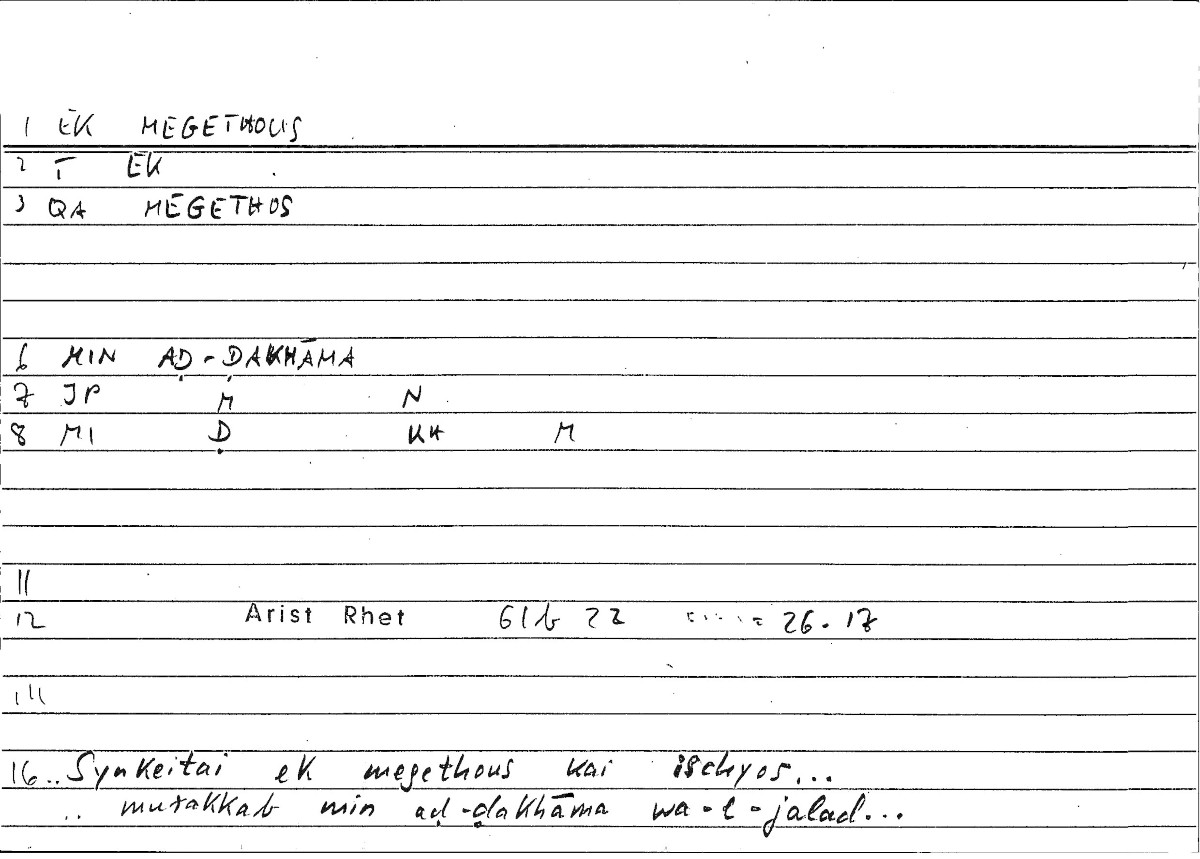 1 EK MEGETHOUS
2 T EK
3 QA MEGETHOS
6 MIN AḌ-ḌAKHĀMA
7 JP M N
8 MI Ḍ KH M
11
12 Arist Rhet 61b 22 = 26.17
14
16.. Synkeitai ek megethous kai ischyos...
.. murakkab min aḍ-ḍakhāma wa-l-jalad...